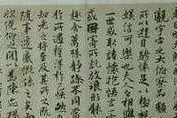 觀宇宙之大俯察品類
所以遊目騁懷足以極視
娛信可樂也夫人之相與
一世或取諸懷抱悟言一
或因寄所託放浪形骸
趣舍萬殊靜躁不同
於所遇蹔得於己快然
知老之將至及其所之
隨事遷感慨係之矣
欣俛仰之間以為陳迹